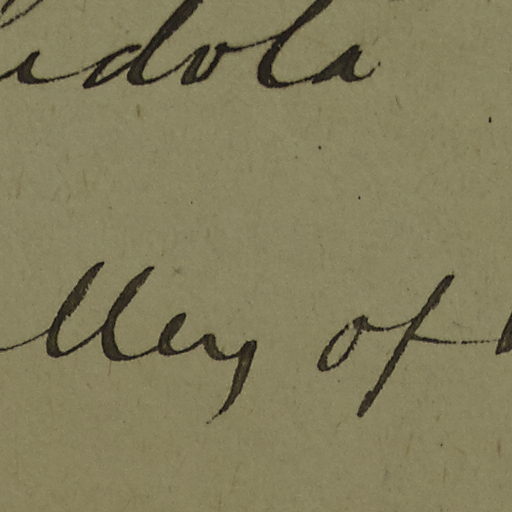 idola
lley of